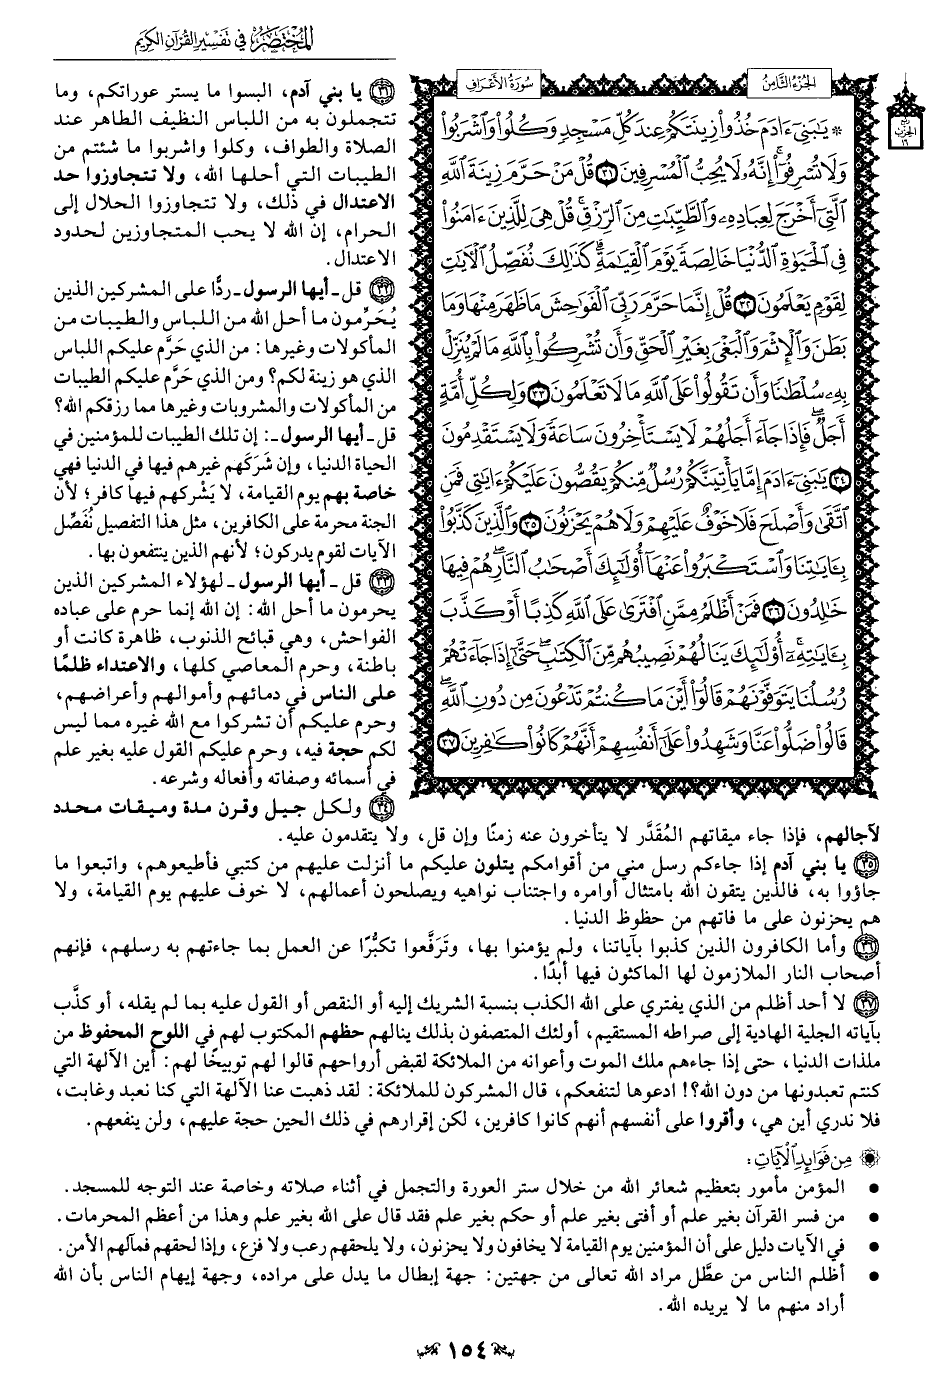 المختصر في تفسير القرآن الكريم
الجزء الثامن
سورة الأعراف
ربع الحزب ١٦
* يَٰبَنِيٓ ءَادَمَ خُذُواْ زِينَتَكُمۡ عِندَ كُلِّ مَسۡجِدٖ وَكُلُواْ وَٱشۡرَبُواْ
وَلَا تُسۡرِفُوٓاْۚ إِنَّهُۥ لَا يُحِبُّ ٱلۡمُسۡرِفِينَ ٣١ قُلۡ مَنۡ حَرَّمَ زِينَةَ ٱللَّهِ
ٱلَّتِيٓ أَخۡرَجَ لِعِبَادِهِۦ وَٱلطَّيِّبَٰتِ مِنَ ٱلرِّزۡقِۚ قُلۡ هِيَ لِلَّذِينَ ءَامَنُواْ
فِي ٱلۡحَيَوٰةِ ٱلدُّنۡيَا خَالِصَةٗ يَوۡمَ ٱلۡقِيَٰمَةِۗ كَذَٰلِكَ نُفَصِّلُ ٱلۡأٓيَٰتِ
لِقَوۡمٖ يَعۡلَمُونَ ٣٢ قُلۡ إِنَّمَا حَرَّمَ رَبِّيَ ٱلۡفَوَٰحِشَ مَا ظَهَرَ مِنۡهَا وَمَا
بَطَنَ وَٱلۡإِثۡمَ وَٱلۡبَغۡيَ بِغَيۡرِ ٱلۡحَقِّ وَأَن تُشۡرِكُواْ بِٱللَّهِ مَا لَمۡ يُنَزِّلۡ
بِهِۦ سُلۡطَٰنٗا وَأَن تَقُولُواْ عَلَى ٱللَّهِ مَا لَا تَعۡلَمُونَ ٣٣ وَلِكُلِّ أُمَّةٍ
أَجَلٞۖ فَإِذَا جَآءَ أَجَلُهُمۡ لَا يَسۡتَأۡخِرُونَ سَاعَةٗ وَلَا يَسۡتَقۡدِمُونَ
٣٤ يَٰبَنِيٓ ءَادَمَ إِمَّا يَأۡتِيَنَّكُمۡ رُسُلٞ مِّنكُمۡ يَقُصُّونَ عَلَيۡكُمۡ ءَايَٰتِي فَمَنِ
ٱتَّقَىٰ وَأَصۡلَحَ فَلَا خَوۡفٌ عَلَيۡهِمۡ وَلَا هُمۡ يَحۡزَنُونَ ٣٥ وَٱلَّذِينَ كَذَّبُواْ
بِـَٔايَٰتِنَا وَٱسۡتَكۡبَرُواْ عَنۡهَآ أُوْلَٰٓئِكَ أَصۡحَٰبُ ٱلنَّارِۖ هُمۡ فِيهَا
خَٰلِدُونَ ٣٦ فَمَنۡ أَظۡلَمُ مِمَّنِ ٱفۡتَرَىٰ عَلَى ٱللَّهِ كَذِبًا أَوۡ كَذَّبَ
بِـَٔايَٰتِهِۦٓۚ أُوْلَٰٓئِكَ يَنَالُهُمۡ نَصِيبُهُم مِّنَ ٱلۡكِتَٰبِۖ حَتَّىٰٓ إِذَا جَآءَتۡهُمۡ
رُسُلُنَا يَتَوَفَّوۡنَهُمۡ قَالُوٓاْ أَيۡنَ مَا كُنتُمۡ تَدۡعُونَ مِن دُونِ ٱللَّهِۖ
قَالُواْ ضَلُّواْ عَنَّا وَشَهِدُواْ عَلَىٰٓ أَنفُسِهِمۡ أَنَّهُمۡ كَانُواْ كَٰفِرِينَ ٣٧
٣١ يا بني آدم، البسوا ما يستر عوراتكم، وما
تتجملون به من اللباس النظيف الطاهر عند
الصلاة والطواف، وكلوا واشربوا ما شئتم من
الطيبات التي أحلها الله، ولا تتجاوزوا حد
الاعتدال في ذلك، ولا تتجاوزوا الحلال إلى
الحرام، إن الله لا يحب المتجاوزين لحدود
الاعتدال.
٣٢ قل ـ أيها الرسول ـ ردًّا على المشركين الذين
يُحَرِّمون ما أحل الله من اللباس والطيبات من
المأكولات وغيرها: من الذي حَرَّم عليكم اللباس
الذي هو زينة لكم؟ ومن الذي حَرَّم عليكم الطيبات
من المأكولات والمشروبات وغيرها مما رزقكم الله؟
قل ـ أيها الرسول ـ: إن تلك الطيبات للمؤمنين في
الحياة الدنيا، وإن شَرَكَهم غيرهم فيها في الدنيا فهي
خاصة بهم يوم القيامة، لا يَشْركهم فيها كافر؛ لأن
الجنة محرمة على الكافرين، مثل هذا التفصيل نُفَصِّل
الآيات لقوم يدركون؛ لأنهم الذين ينتفعون بها.
٣٣ قل ـ أيها الرسول ـ لهؤلاء المشركين الذين
يحرمون ما أحل الله: إن الله إنما حرم على عباده
الفواحش، وهي قبائح الذنوب، ظاهرة كانت أو
باطنة، وحرم المعاصي كلها، والاعتداء ظلمًا
على الناس في دمائهم وأموالهم وأعراضهم،
وحرم عليكم أن تشركوا مع الله غيره مما ليس
لكم حجة فيه، وحرم عليكم القول عليه بغير علم
في أسمائه وصفاته وأفعاله وشرعه.
٣٤ ولكل جيل وقرن مدة وميقات محدد
لآجالهم، فإذا جاء ميقاتهم المُقَدَّر لا يتأخرون عنه زمنًا وإن قل، ولا يتقدمون عليه.
٣٥ يا بني آدم إذا جاءكم رسل مني من أقوامكم يتلون عليكم ما أنزلت عليهم من كتبي فأطيعوهم، واتبعوا ما
جاؤوا به، فالذين يتقون الله بامتثال أوامره واجتناب نواهيه ويصلحون أعمالهم، لا خوف عليهم يوم القيامة، ولا
هم يحزنون على ما فاتهم من حظوظ الدنيا.
٣٦ وأما الكافرون الذين كذبوا بآياتنا، ولم يؤمنوا بها، وتَرَفَّعوا تكبُّرًا عن العمل بما جاءتهم به رسلهم، فإنهم
أصحاب النار الملازمون لها الماكثون فيها أبدًا.
٣٧ لا أحد أظلم من الذي يفتري على الله الكذب بنسبة الشريك إليه أو النقص أو القول عليه بما لم يقله، أو كذَّب
بآياته الجلية الهادية إلى صراطه المستقيم، أولئك المتصفون بذلك ينالهم حظهم المكتوب لهم في اللوح المحفوظ من
ملذات الدنيا، حتى إذا جاءهم ملك الموت وأعوانه من الملائكة لقبض أرواحهم قالوا لهم توبيخًا لهم: أين الآلهة التي
كنتم تعبدونها من دون الله؟! ادعوها لتنفعكم، قال المشركون للملائكة: لقد ذهبت عنا الآلهة التي كنا نعبد وغابت،
فلا ندري أين هي، وأقروا على أنفسهم أنهم كانوا كافرين، لكن إقرارهم في ذلك الحين حجة عليهم، ولن ينفعهم.
من فوائد الآيات:
• المؤمن مأمور بتعظيم شعائر الله من خلال ستر العورة والتجمل في أثناء صلاته وخاصة عند التوجه للمسجد.
• من فسر القرآن بغير علم أو أفتى بغير علم أو حكم بغير علم فقد قال على الله بغير علم وهذا من أعظم المحرمات.
• في الآيات دليل على أن المؤمنين يوم القيامة لا يخافون ولا يحزنون، ولا يلحقهم رعب ولا فزع، وإذا لحقهم فمآلهم الأمن.
• أظلم الناس من عطَّل مراد الله تعالى من جهتين: جهة إبطال ما يدل على مراده، وجهة إيهام الناس بأن الله
أراد منهم ما لا يريده الله.
١٥٤